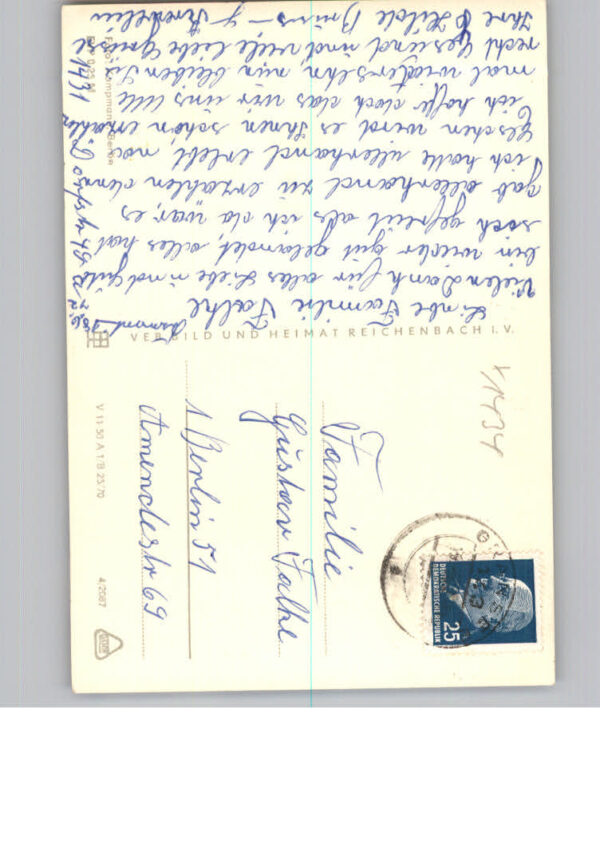 Liebe Familie Falke
Vielen Dank für alles Liebe und gute
bin wieder gut gelandet, alles hat
sich gefreut als ich da war, es
gab allerhand zu erzählen denn
ich hatte allerhand erlebt
wird es Ihnen schon erzählen
ich hoffe doch das wir uns alle
mal wiedersehn, nun bleiben Sie
recht gesund und viele liebe Grüsse
Ihre Hilde
1431
VERBILD UND HEIMAT REICHENBACH I.V.
V 11 50 A 1/B 23/70
4/2087
Familie
Gustav Falke
1 Berlin 51
Amendestr 69
Y1434
DEUTSCHE
DEMOKRATISCHE REPUBLIK
25